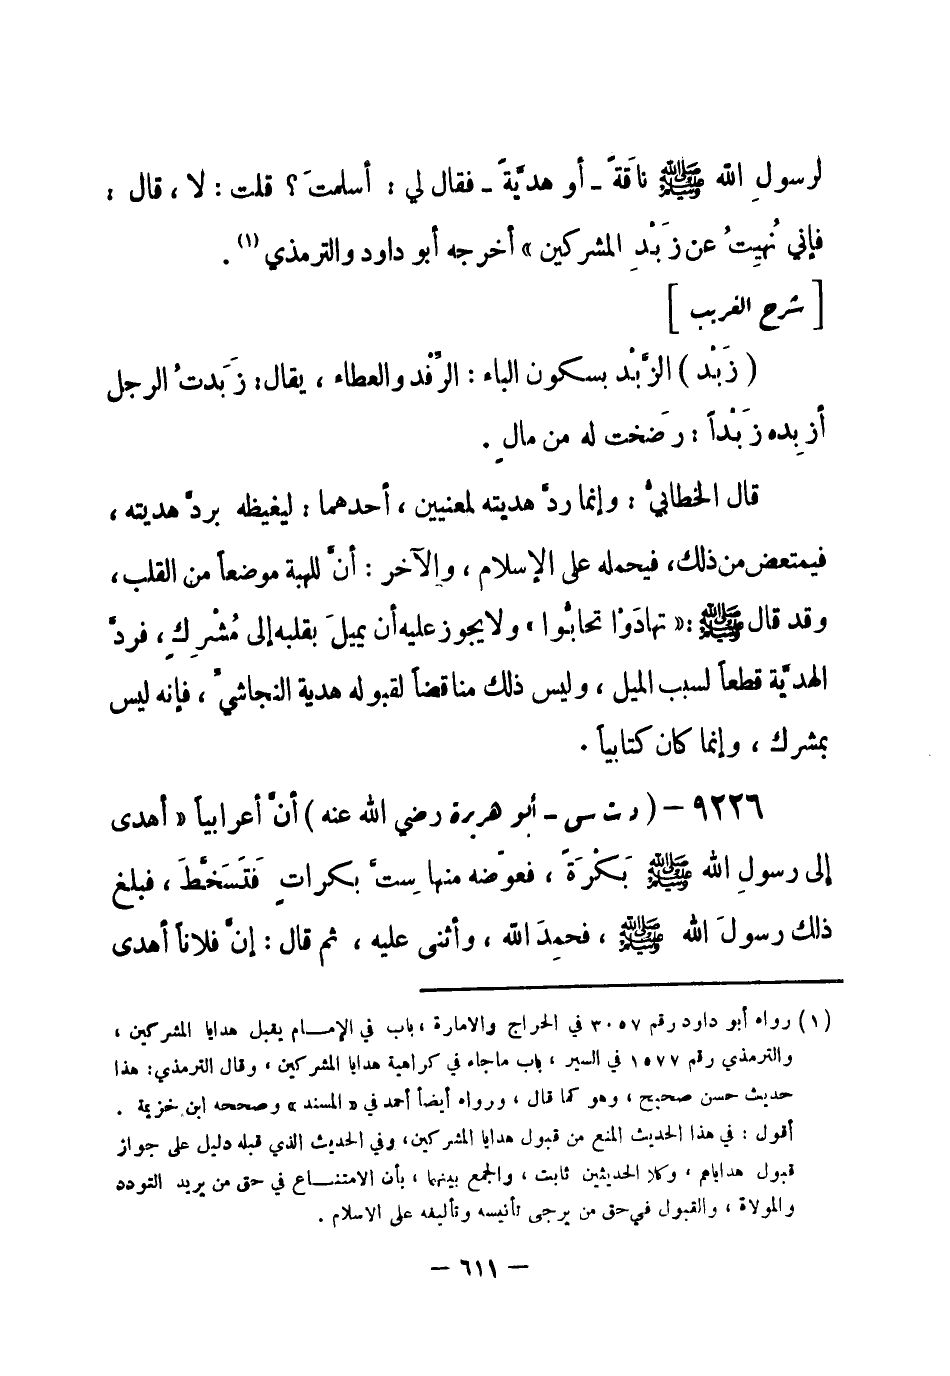 لرسولِ الله ﷺ ناقةً ـ أو هديَّةً ـ فقال لي : أسلمتَ ؟ قلت : لا ، قال :
فإني نُهيتُ عن زَبْدِ المشركين » أخرجه أبو داود والترمذي (١) .
[ شرح الغريب ]
( زَبْد ) الزَّبْد بسكون الباء : الرِّفْد والعطاء ، يقال : زَبَدتُ الرجل
أزبِده زَبْداً : رَضخت له من مالٍ .
قال الخطابيُّ : وإنما ردَّ هديته لمعنيين ، أحدهما : ليغيظه بردِّ هديته ،
فيمتعض من ذلك ، فيحمله على الإسلام ، والآخر : أنَّ للهبة موضعاً من القلب ،
وقد قال ﷺ : « تهادَوْا تحابُّوا » ولا يجوز عليه أن يميلَ بقلبه إلى مُشْرِكٍ ، فردَّ
الهديَّة قطعاً لسبب الميل ، وليس ذلك مناقضاً لقبوله هدية النجاشيِّ ، فإنه ليس
بمشرك ، وإنما كان كتابياً .
٩٢٢٦ – ( د ت س – أبو هريرة رضي الله عنه ) أنَّ أعرابياً « أهدى
إلى رسولِ الله ﷺ بَكْرَةً ، فعوَّضه منها سِتَّ بكراتٍ فَتَسَخَّطَ ، فبلغ
ذلك رسولَ الله ﷺ ، فحمِدَ الله ، وأثنى عليه ، ثم قال : إنَّ فلاناً أهدى
(١) رواه أبو داود رقم ٣٠٥٧ في الخراج والامارة ، باب في الإمـــام يقبل هدايا المشركين ،
والترمذي رقم ١٥٧٧ في السير ، باب ماجاء في كراهية هدايا المشركين ، وقال الترمذي : هذا
حديث حسن صحيح ، وهو كما قال ، ورواه أيضاً أحمد في « المسند » وصححه ابن خزيمة .
أقول : في هذا الحديث المنع من قبول هدايا المشركين ، وفي الحديث الذي قبله دليل على جواز
قبول هداياهم ، وكلا الحديثين ثابت ، والجمع بينهما ، بأن الامتنـــاع في حق من يريد التودد
والمولاة ، والقبول في حق من يرجى تأنيسه وتأليفه على الاسلام .
– ٦١١ –